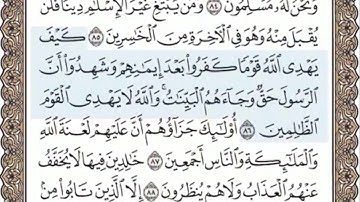 وَنَحْنُ لَهُۥ مُسْلِمُونَ ٨٤ وَمَن يَبْتَغِ غَيْرَ ٱلْإِسْلَٰمِ دِينًا فَلَن
يُقْبَلَ مِنْهُ وَهُوَ فِى ٱلْـَٔاخِرَةِ مِنَ ٱلْخَٰسِرِينَ ٨٥ كَيْفَ
يَهْدِى ٱللَّهُ قَوْمًا كَفَرُوا۟ بَعْدَ إِيمَٰنِهِمْ وَشَهِدُوٓا۟ أَنَّ
ٱلرَّسُولَ حَقٌّ وَجَآءَهُمُ ٱلْبَيِّنَٰتُ ۚ وَٱللَّهُ لَا يَهْدِى ٱلْقَوْمَ
ٱلظَّٰلِمِينَ ٨٦ أُو۟لَٰٓئِكَ جَزَآؤُهُمْ أَنَّ عَلَيْهِمْ لَعْنَةَ ٱللَّهِ
وَٱلْمَلَٰٓئِكَةِ وَٱلنَّاسِ أَجْمَعِينَ ٨٧ خَٰلِدِينَ فِيهَا لَا يُخَفَّفُ
عَنْهُمُ ٱلْعَذَابُ وَلَا هُمْ يُنظَرُونَ ٨٨ إِلَّا ٱلَّذِينَ تَابُوا۟ مِنۢ